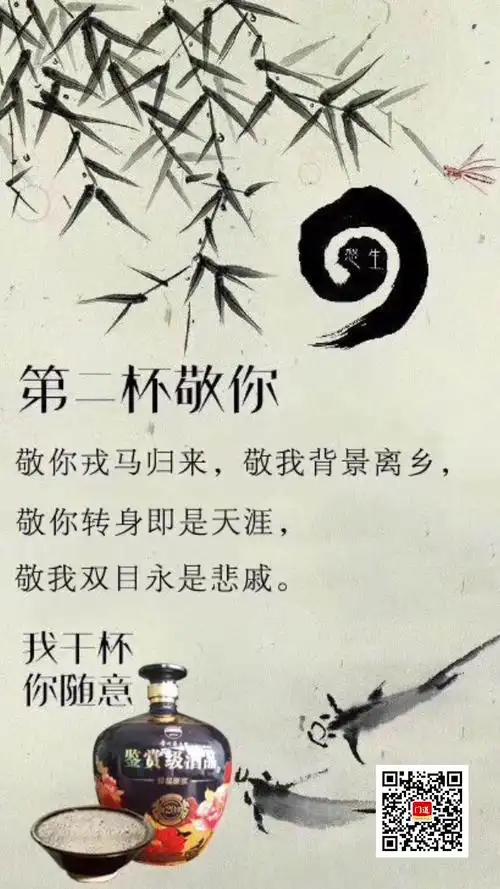 悠生
第二杯敬你
敬你戎马归来，敬我背景离乡，
敬你转身即是天涯，
敬我双目永是悲戚。
我干杯
你随意
鉴赏级酒品
门道